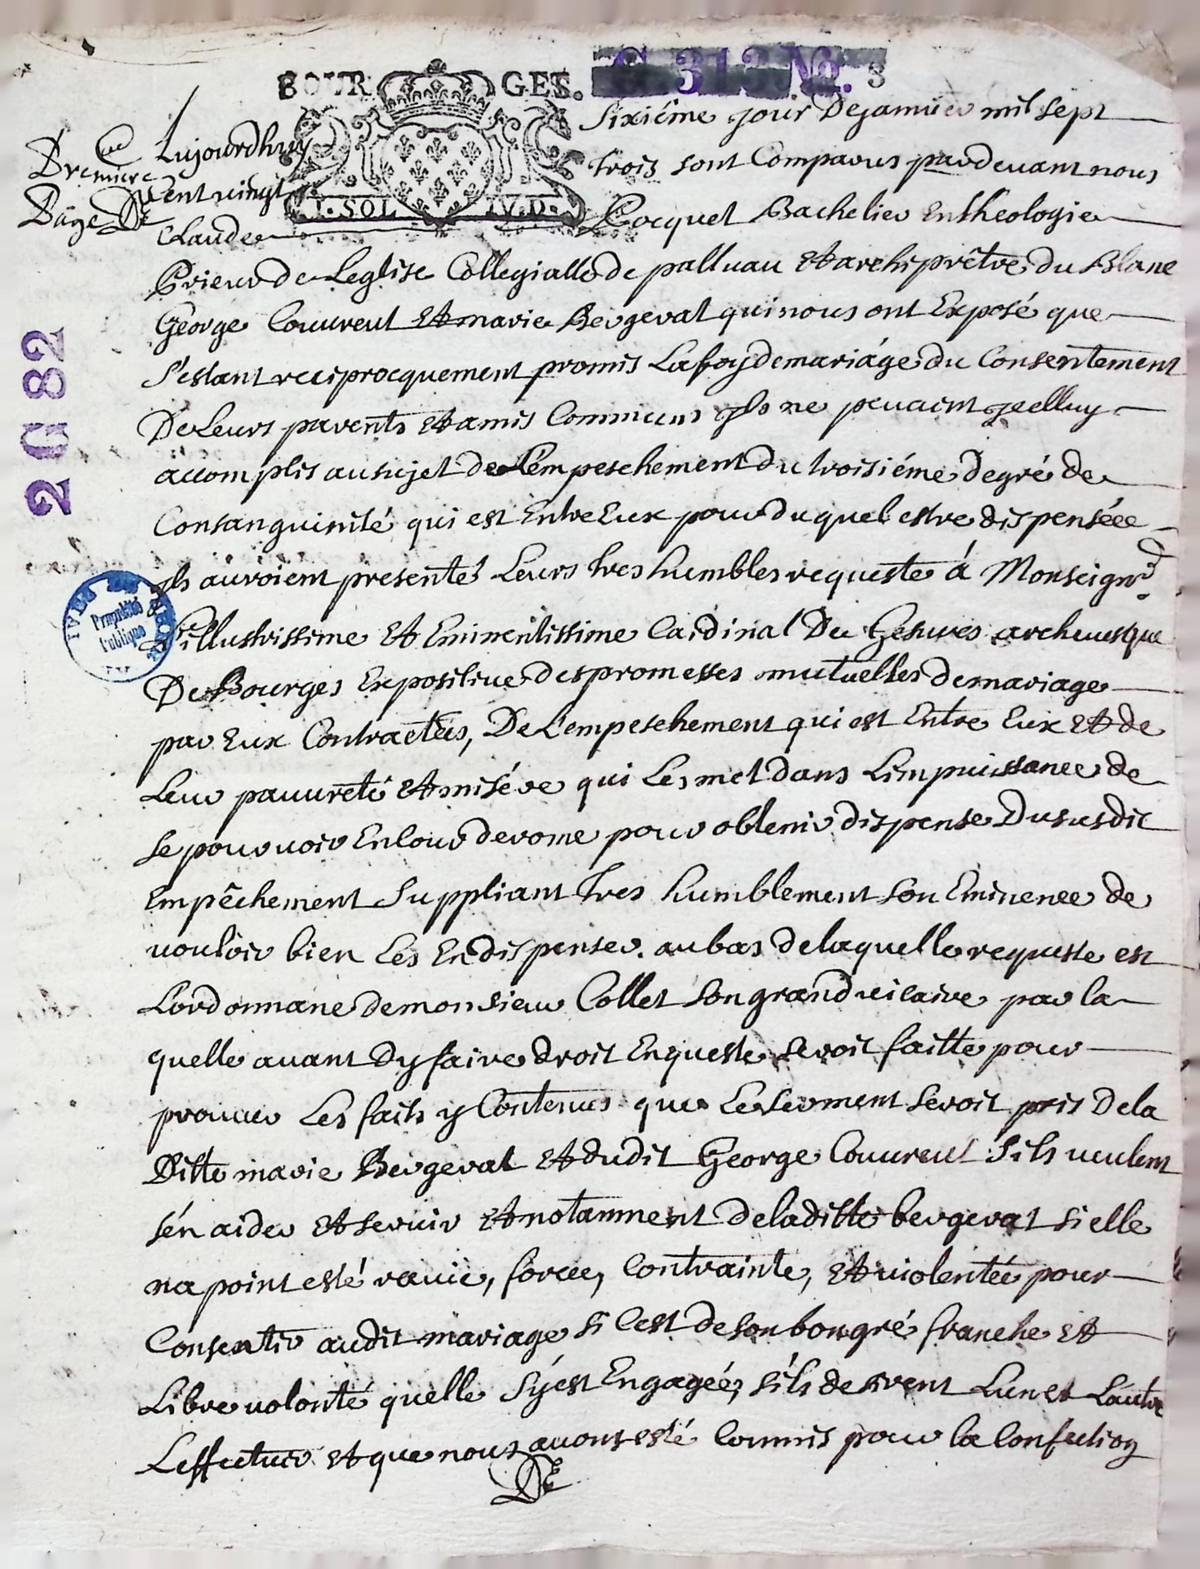 BOURGES. C 313 No. 3
Premiere
Page
I. SOL IV. D.
Aujourdhuy Sixiéme jour De januier mil sept
Cent vingt trois sont Comparus pardeuant nous
Claude Cocquet Bachelier En theologie
Prieur de Leglise Collegialle de palluau Et archiprêtre du Blanc
George Couureul Et marie Bergerat qui nous ont Exposé que
S'estant reciprocquement promis La foy de mariáge du Consentement
De Leurs parents Et amis Communs Ils ne peuuent Jcelluy
accomplir au sujet de L'empeschement du troisiéme degré de
Consanguinité qui est Entre Eux pour du quel estre dispenséee
Ils auroient presenté Leurs tres humbles requeste á Monseignr.
L'illustrissime Et Eminentissime Cardinal De Gesures archeuesque
De Bourges Expositiue des promesses mutuelles de mariage
par Eux Contractées, De L'empeschement qui est Entre Eux Et de
Leur pauureté Et misére qui Les met dans L'impuissance de
se pouruoir En Cour de rome pour obtenir dispense Dususdit
Empêchement Suppliant tres humblement son Eminence de
vouloir bien Les En dispenser. au bas de laquelle requeste est
L'ordonnance de monsieur Collet son grand vicaire par la
quelle auant Dy faire droit Enqueste seroit faitte pour
prouuer Les faits y Contenus que Le serment seroit pris De la
Ditte marie Bergerat Et dudit George Couureul S'ils veulent
s'én aider Et seruir Et notamment de laditte bergerat si elle
na point esté rauie, forcée, Contrainte, Et violentée pour
Consentir audit mariage si C'est de son bon gré franche Et
Libre volonté quelle S'ÿ est Engagée, s'ils desirent L'un Et L'autre
L'effectuer Et que nous auons esté Commis pour la Confection
2 G 82
Propriété
Publique